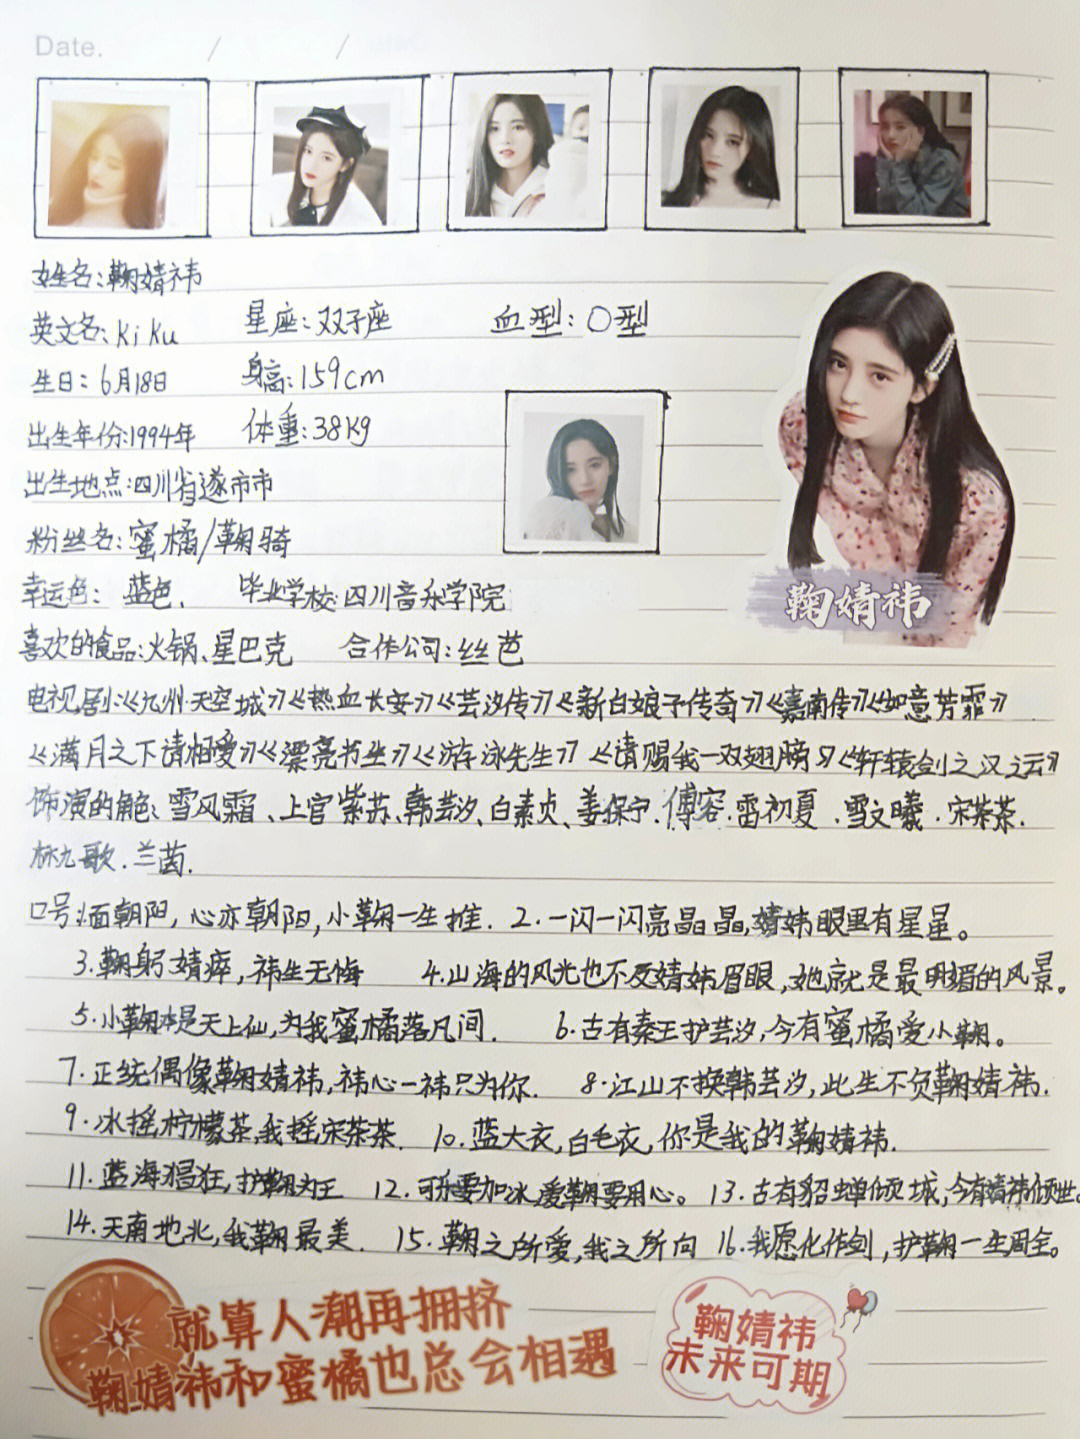 Date. / /
姓名:鞠婧祎
英文名:KiKu 星座:双子座 血型:O型
生日:6月18日 身高:159cm
出生年份:1994年 体重:38Kg
出生地点:四川省遂市市
粉丝名:蜜橘/鞠骑
鞠婧祎
幸运色:蓝色、 毕业学校:四川音乐学院
喜欢的食品:火锅、星巴克 合作公司:丝芭
电视剧:《九州·天空城》《热血长安》《芸汐传》《新白娘子传奇》《嘉南传》《如意芳霏》
《满月之下请相爱》《漂亮书生》《游泳先生》《请赐我一双翅膀》《轩辕剑之汉之云》
饰演的角色:雪风霜、上官紫苏、韩芸汐、白素贞、姜保宁.傅容.雷初夏.雪文曦.宋茶茶.
林九歌.兰茵.
口号:1.面朝阳,心亦朝阳,小鞠一生推. 2.一闪一闪亮晶晶,婧祎眼里有星星。
3.鞠躬婧瘁,祎生无悔 4.山海的风光也不及婧祎眉眼,她就是最明媚的风景。
5.小鞠本是天上仙,为我蜜橘落凡间. 6.古有秦王护芸汐,今有蜜橘爱小鞠。
7.正统偶像鞠婧祎,祎心一祎只为你. 8.江山不换韩芸汐,此生不负鞠婧祎.
9.冰摇柠檬茶,我摇宋茶茶. 10.蓝大衣,白毛衣,你是我的鞠婧祎.
11.蓝海猖狂,护鞠为王 12.可乐要加冰,爱鞠要用心。 13.古有貂蝉倾城,今有婧祎倾世。
14.天南地北,我鞠最美. 15.鞠之所爱,我之所向 16.我愿化作剑,护鞠一生周全。
就算人潮再拥挤
鞠婧祎和蜜橘也总会相遇
鞠婧祎
未来可期